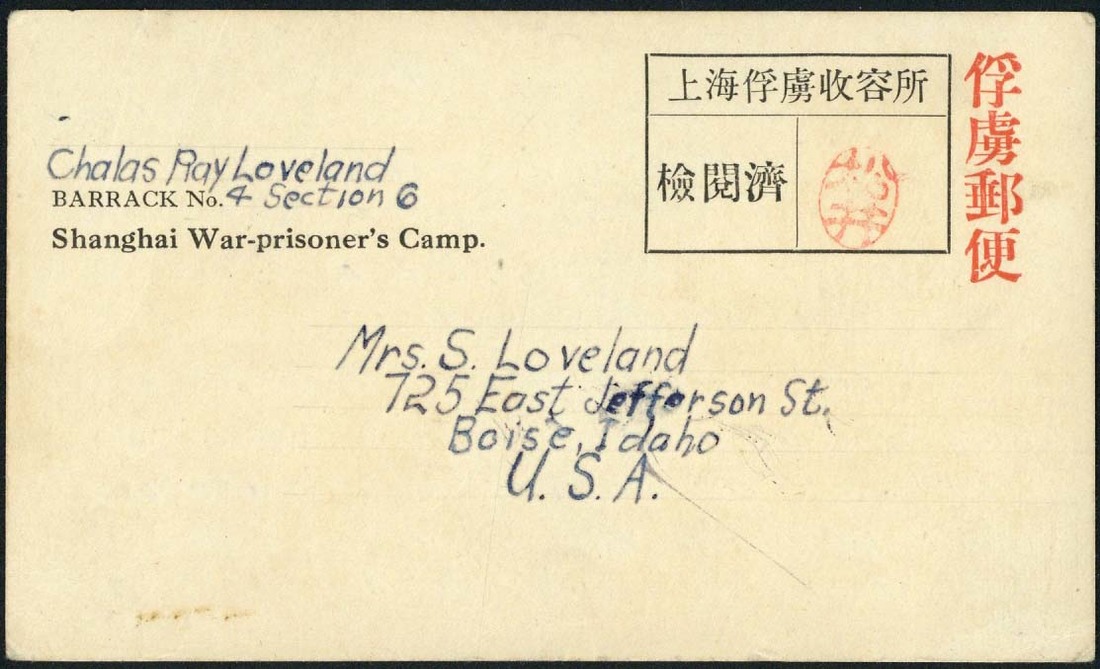 Chalas Ray Loveland
BARRACK No. 4 Section 6
Shanghai War-prisoner's Camp.
上海俘虜收容所
檢閱濟
俘虜郵便
Mrs. S. Loveland
725 East Jefferson St.
Boise, Idaho
U. S. A.